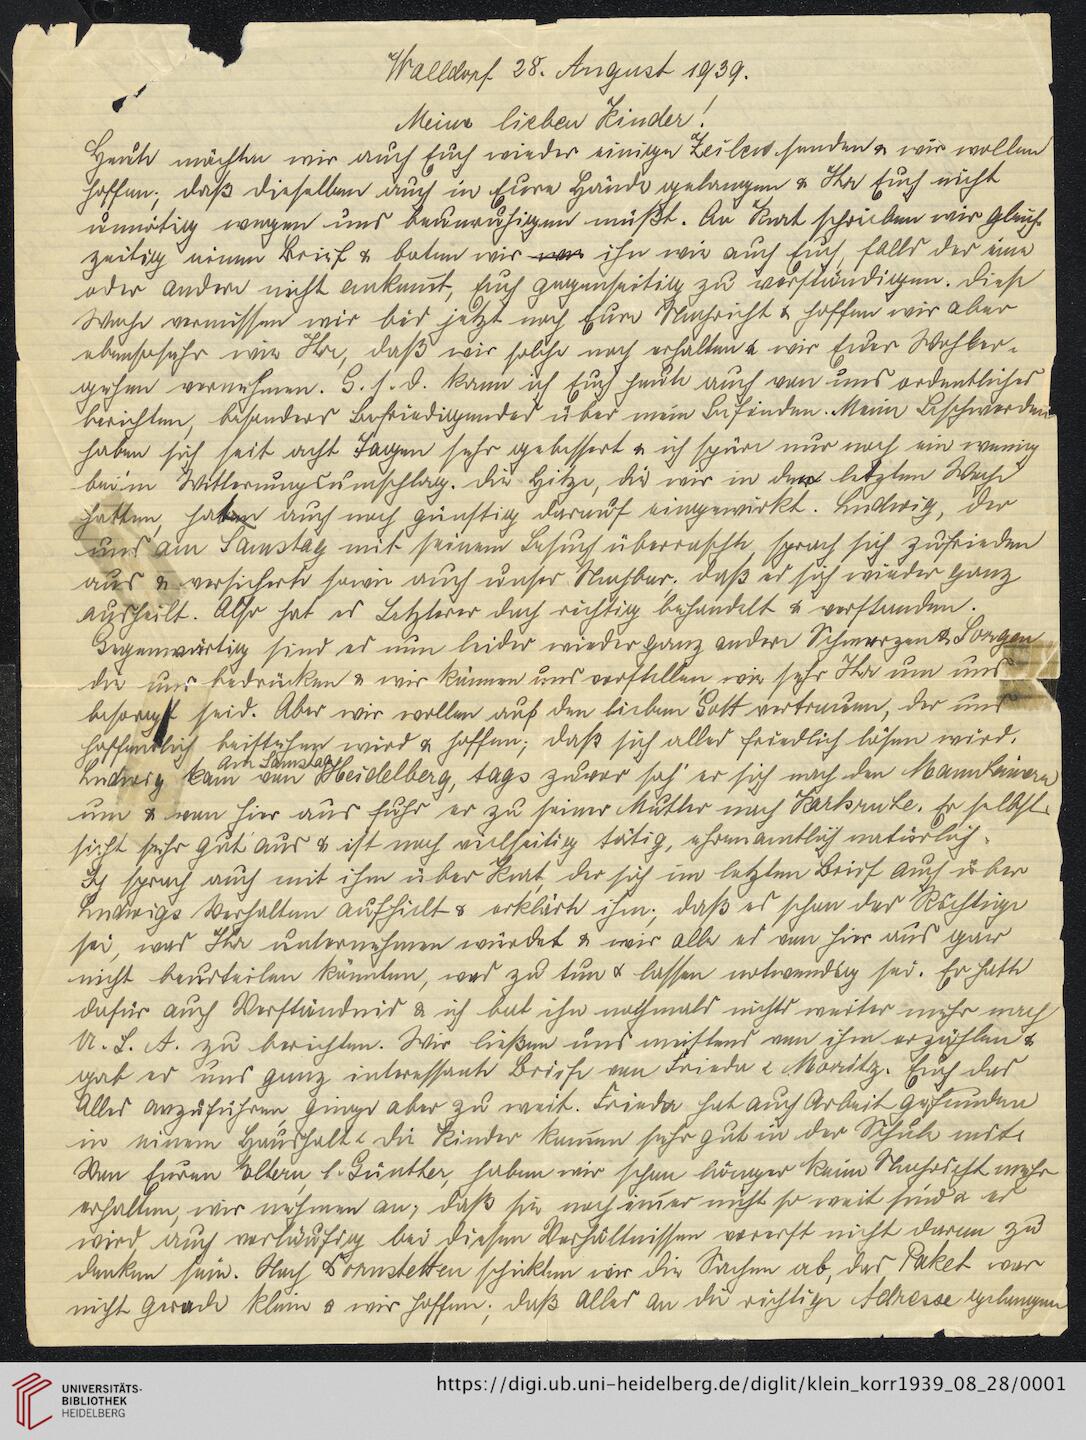 Walldorf 28. August 1939.
Meine lieben Kinder!
Heute möchten wir auch Euch wieder einige Zeilen senden & wir wollen
hoffen, daß dieselben auch in Eure Hände gelangen & Ihr Euch nicht
unnötig wegen uns beunruhigen müßt. An Kurt schrieben wir gleich-
zeitig einen Brief & baten wir ihn wie auch Euch, falls der eine
oder andere nicht ankommt, Euch gegenseitig zu verständigen. Diese
Woche vermissen wir bis jetzt noch Eure Nachricht & hoffen wir aber
ebensosehr wie Ihr, daß wir solche noch erhalten & wir Euer Wohler-
gehen vernehmen. G. s. D. kann ich Euch heute auch von uns ordentliches
berichten, besonders Befriedigendes über mein Befinden. Meine Beschwerden
haben sich seit acht Tagen sehr gebessert & ich spüre nur noch ein wenig
beim Witterungsumschlag. Die Hitze, die wir in der letzten Woche
hatten, haben auch noch günstig darauf eingewirkt. Ludwig, der
uns am Samstag mit seinem Besuch überraschte, sprach sich zufrieden
aus & versicherte sowie auch unser Nachbar, daß es sich wieder ganz
ausheilt. Also hat es Letzterer doch richtig behandelt & verstanden.
Gegenwärtig sind es nun leider wieder ganz andere Schmerzen & Sorgen
die uns bedrücken & wir können uns vorstellen wie sehr Ihr um uns
besorgt seid. Aber wir wollen auf den lieben Gott vertrauen, der uns
hoffentlich beistehen wird & hoffen, daß sich alles friedlich lösen wird.
Am Samstag
Ludwig kam von Heidelberg, tags zuvor sah er sich nach den Mannheimern
um & von hier aus fuhr er zu seiner Mutter nach Karlsruhe. Er selbst
sieht sehr gut aus & ist noch vielseitig tätig, ehrenamtlich natürlich.
Ich sprach auch mit ihm über Kurt, der sich im letzten Brief auch über
Ludwigs Verhalten aufhielt & erklärte ihm, daß es schon das Richtige
sei, was Ihr unternehmen würdet & wir alle es von hier aus gar
nicht beurteilen könnten, was zu tun & lassen notwendig sei. Er hatte
dafür auch Verständnis & ich bat ihn nochmals nichts weiter mehr nach
U. S. A. zu berichten. Wir ließen uns meistens von ihm erzählen &
gab er uns ganz interessante Briefe von Frieda & Moritz. Euch das
Alles anzuführen ginge aber zu weit. Frieda hat auch Arbeit gefunden
in einem Haushalt & die Kinder kommen sehr gut in der Schule mit.
Von Euren Eltern, l. Günther, haben wir schon länger keine Nachricht mehr
erhalten, wir nehmen an, daß sie noch immer nicht so weit sind & es
wird auch vorläufig bei diesen Verhältnissen vorerst nicht daran zu
denken sein. Nach Dornstetten schickten wir die Sachen ab, das Paket war
nicht gerade klein & wir hoffen, daß Alles an die richtige Adresse gelangen
UNIVERSITÄTS-
BIBLIOTHEK
HEIDELBERG
https://digi.ub.uni-heidelberg.de/diglit/klein_korr1939_08_28/0001